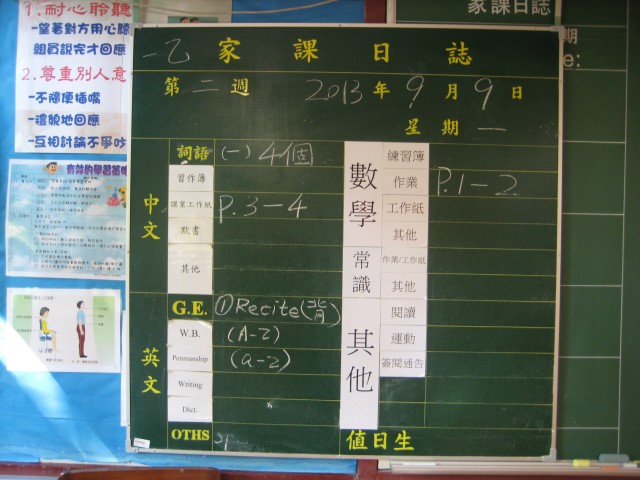 1.耐心聆聽
-望著對方用心聽
組員說完才回應
2.尊重別人意
-不隨便插嘴
-禮貌地回應
-互相討論不爭吵
家課日誌
期
e:
一乙 家課日誌
第二週 2013年9月9日
星期一
中文
詞語 (一) 4個
習作簿
課業工作紙 P.3-4
默書
其他
英文
G.E. ①Recite(背)
W.B. (A-Z)
Penmanship (a-z)
Writing
Dict.
OTHS
數學
練習簿
作業 P.1-2
工作紙
其他
常識
作業/工作紙
其他
其他
閱讀
運動
簽閱通告
值日生